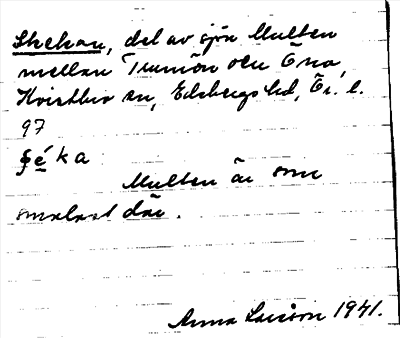 Skekan, del av sjön Multen
mellan Tranön och Öna,
Kvistbro sn, Edsbergs hd, Ör. l.
97
ʃé̱ka
Multen är som
smalast där.
Anna Larsson 1941.